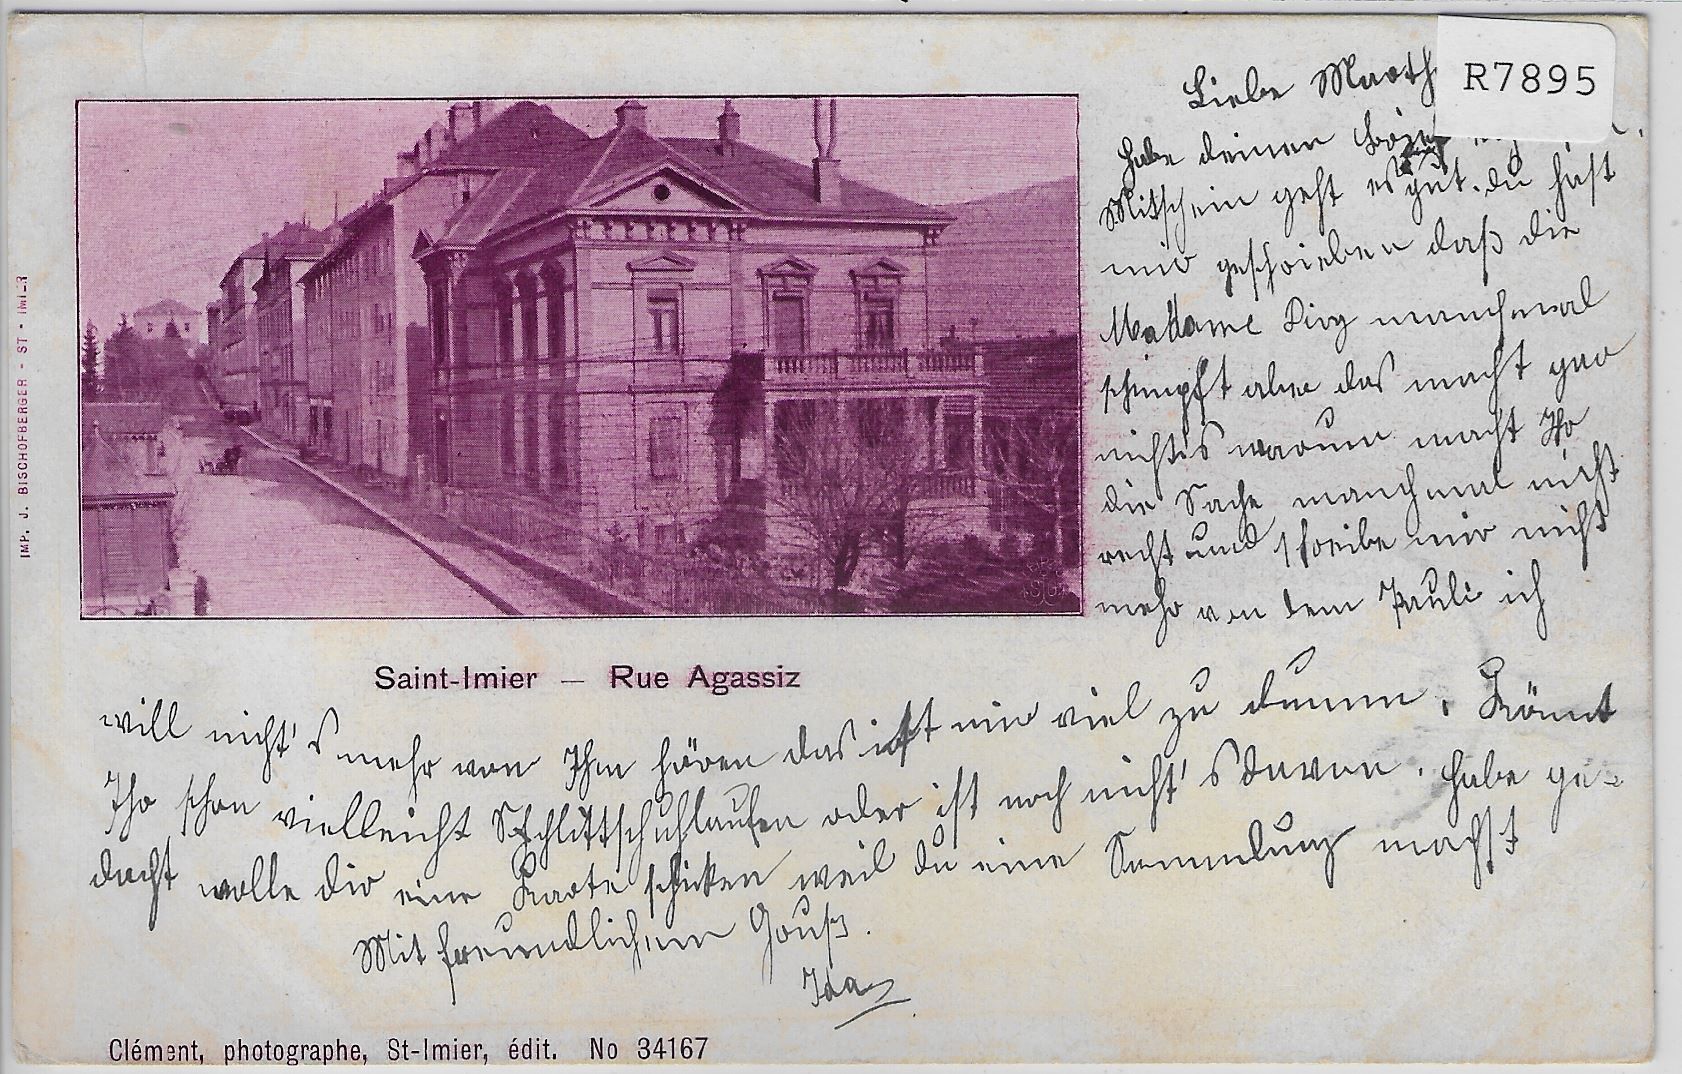 R7895
Liebe Marth
Habe deinen
Mitschein geht es gut. du hast
mir geschrieben daß die
Madame manchmal
schimpft aber das macht gar
nichts warum macht Ihr
die Sache manchmal nicht
recht und schreibe mir nicht
mehr von dem Pauli ich
will nicht's mehr von Ihm hören das ist mir viel zu dumm. Könnt
Ihr schon vielleicht Schlittschuhlaufen oder ist noch nicht's davon. Habe ge-
dacht wolle dir eine Karte schicken weil du eine Sammlung machst
Mit freundlichem Gruß.
Ida
Saint-Imier — Rue Agassiz
IMP. J. BISCHOFBERGER - ST - IMIER
Clément, photographe, St-Imier, édit. No 34167